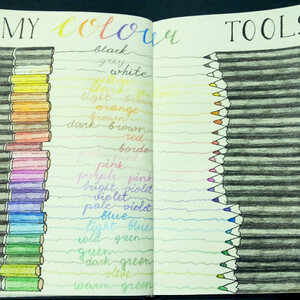 MY colour TOOLS
black
grey
white
yellow
dark yellow
light
orange
brown
dark brown
red
bordo
pink
purple pink
bright violet
violet
pale violet
blue
light blue
cold green
green
dark green
olive
warm green